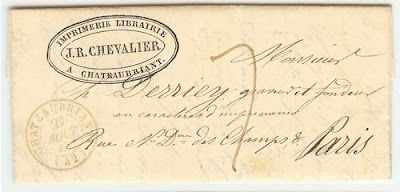 IMPRIMERIE LIBRAIRIE
J. R. CHEVALIER
A CHATEAUBRIANT.
Monsieur
Ch. Derriey graveur et fondeur
en caractères d'imprimerie
Rue N. Dme des Champs 6
Paris
7
CHATEAUBRIANT
AOUT